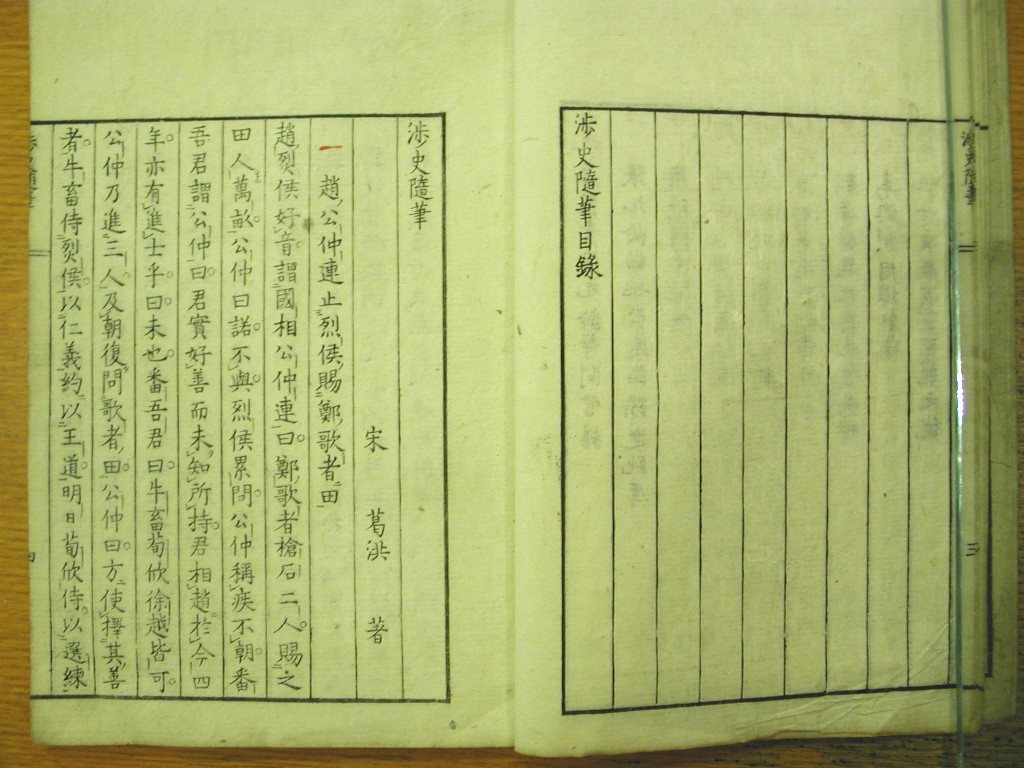 渉史隨筆
三
渉史隨筆目錄
渉史隨筆
宋 葛洪 著
趙公仲連止烈侯賜鄭歌者田
趙烈侯好音謂國相公仲連曰鄭歌者槍石二人賜之
田人萬畝公仲曰諾不與烈侯累問公仲稱疾不朝番
吾君謂公仲曰君實好善而未知所持君相趙於今四
年亦有進士乎曰未也番吾君曰牛畜荀欣徐越皆可
公仲乃進三人及朝復問歌者田公仲曰方使擇其善
者牛畜侍烈侯以仁義約以王道明日荀欣侍以選練